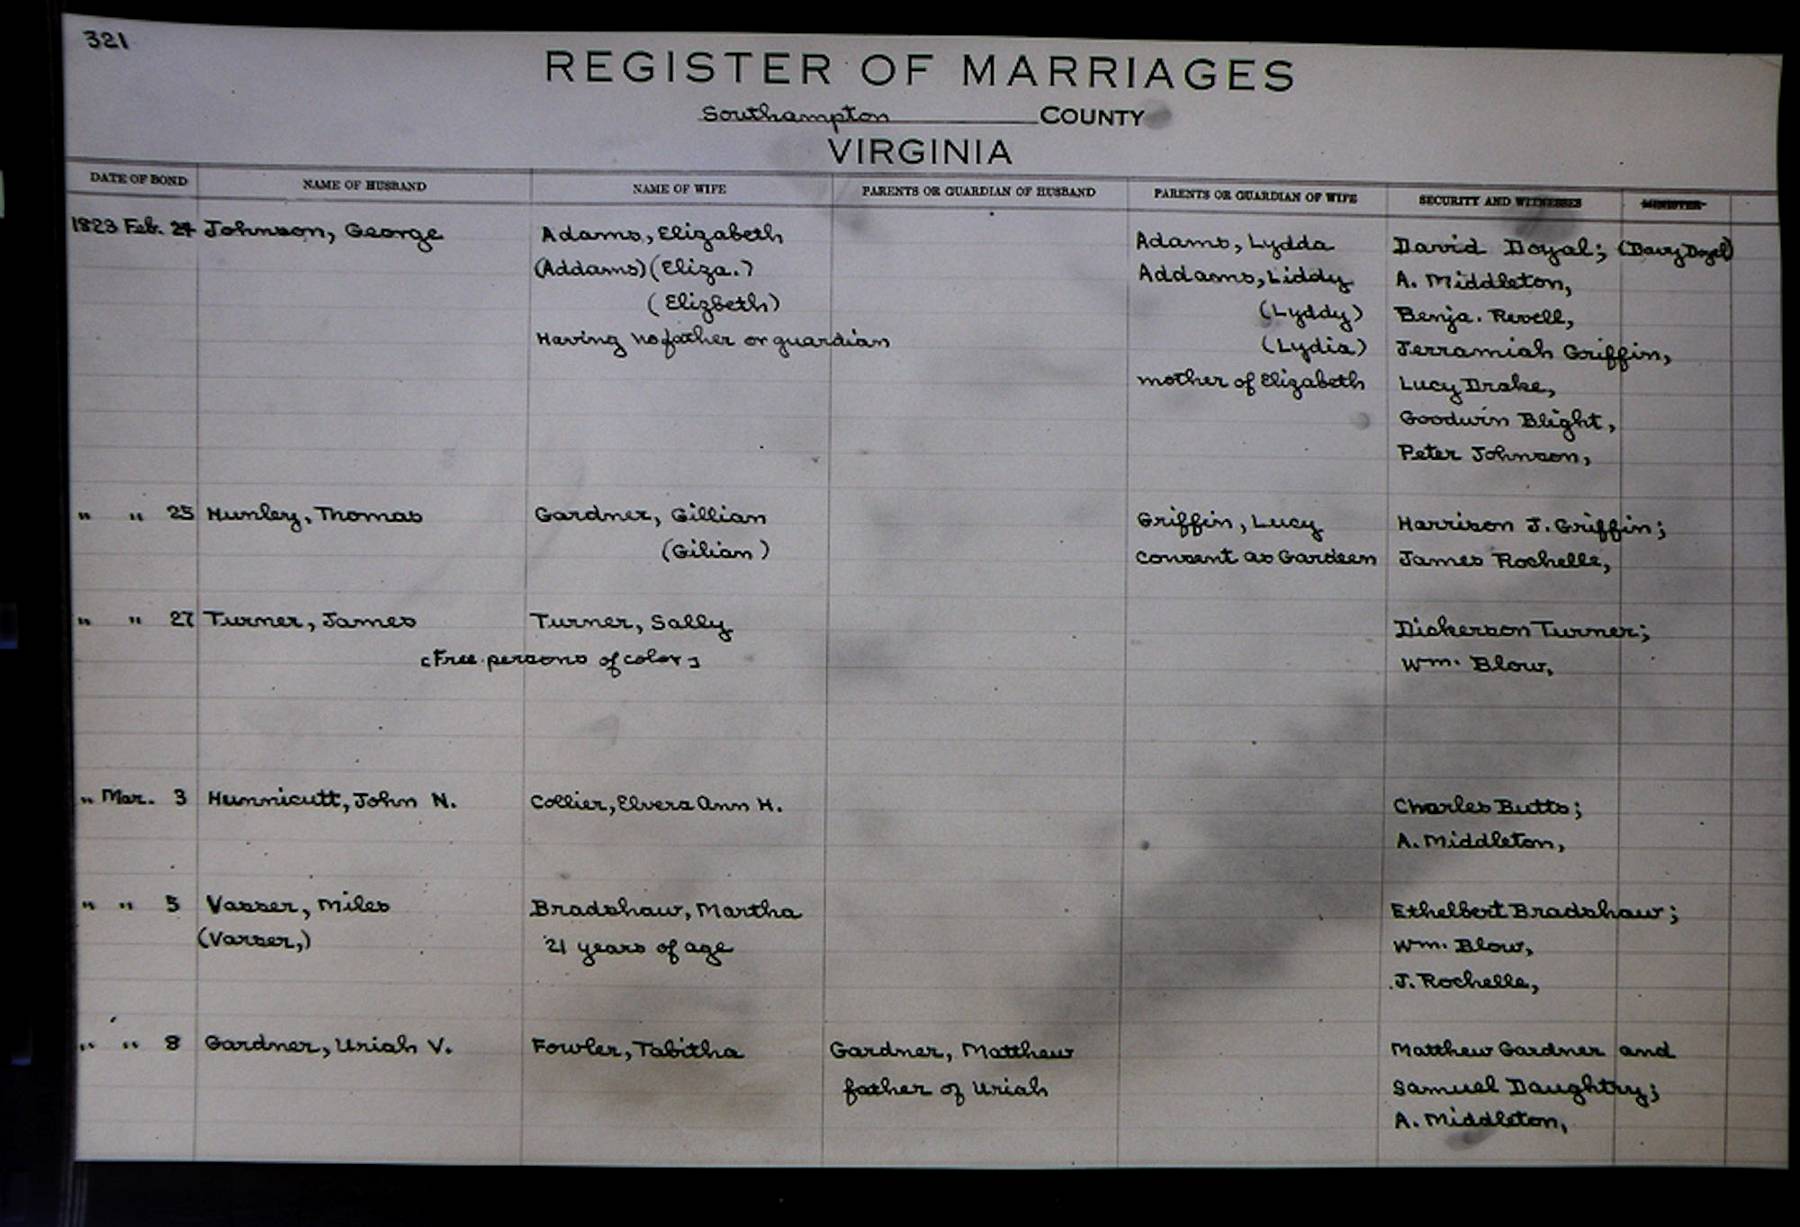 321
REGISTER OF MARRIAGES
Southampton COUNTY
VIRGINIA
DATE OF BOND NAME OF HUSBAND NAME OF WIFE PARENTS OR GUARDIAN OF HUSBAND PARENTS OR GUARDIAN OF WIFE SECURITY AND WITNESSES MINISTER
1823 Feb. 24 Johnson, George Adams, Elizabeth Adams, Lydda David Doyal; (Davy Doyel)
(Addams) (Eliza.) Addams, Liddy A. Middleton,
(Elizbeth) (Lyddy) Benja. Revell,
Having no father or guardian (Lydia) Jerramiah Griffin,
mother of Elizabeth Lucy Drake,
Goodwin Blight,
Peter Johnson,
" " 25 Hunley, Thomas Gardner, Gillian Griffin, Lucy Harrison J. Griffin;
(Gilian) consent as Gardeen James Rochelle,
" " 27 Turner, James Turner, Sally Dickerson Turner;
[Free persons of color] Wm. Blow,
" Mar. 3 Hunnicutt, John N. Collier, Elvera Ann H. Charles Butts;
A. Middleton,
" " 5 Vasser, Miles Bradshaw, Martha Ethelbert Bradshaw;
(Varser,) 21 years of age Wm. Blow,
J. Rochelle,
" " 8 Gardner, Uriah V. Fowler, Tabitha Gardner, Matthew Matthew Gardner and
father of Uriah Samuel Daughtry;
A. Middleton,